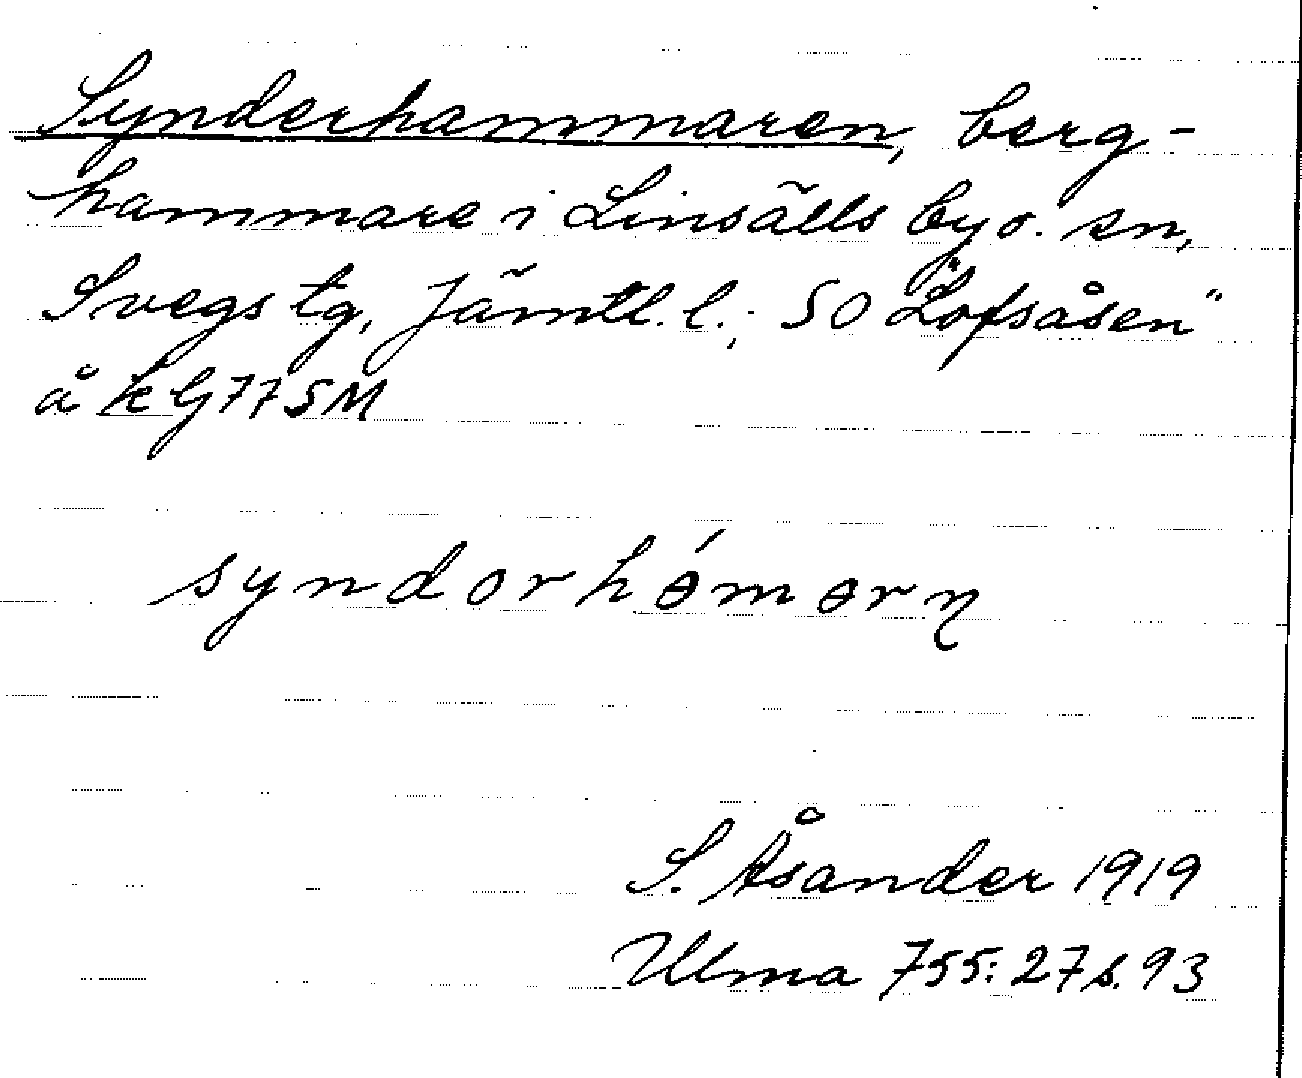 Synderhammaren, berg-
hammare i Linsälls by o. sn,
Svegs tg, Jämtl. l.; SO "Lofsåsen"
å kbl 77 SM
syndorhámərn̥
S. Åsander 1919
Ulma 755:27 s. 93